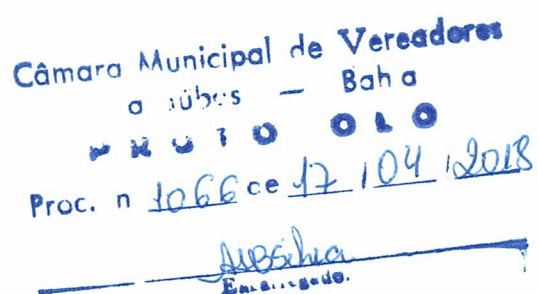 Câmara Municipal de Vereadores
— Bahia
PROTOCOLO
Proc. n 1066 de 17 / 04 / 2018
Encarregado.